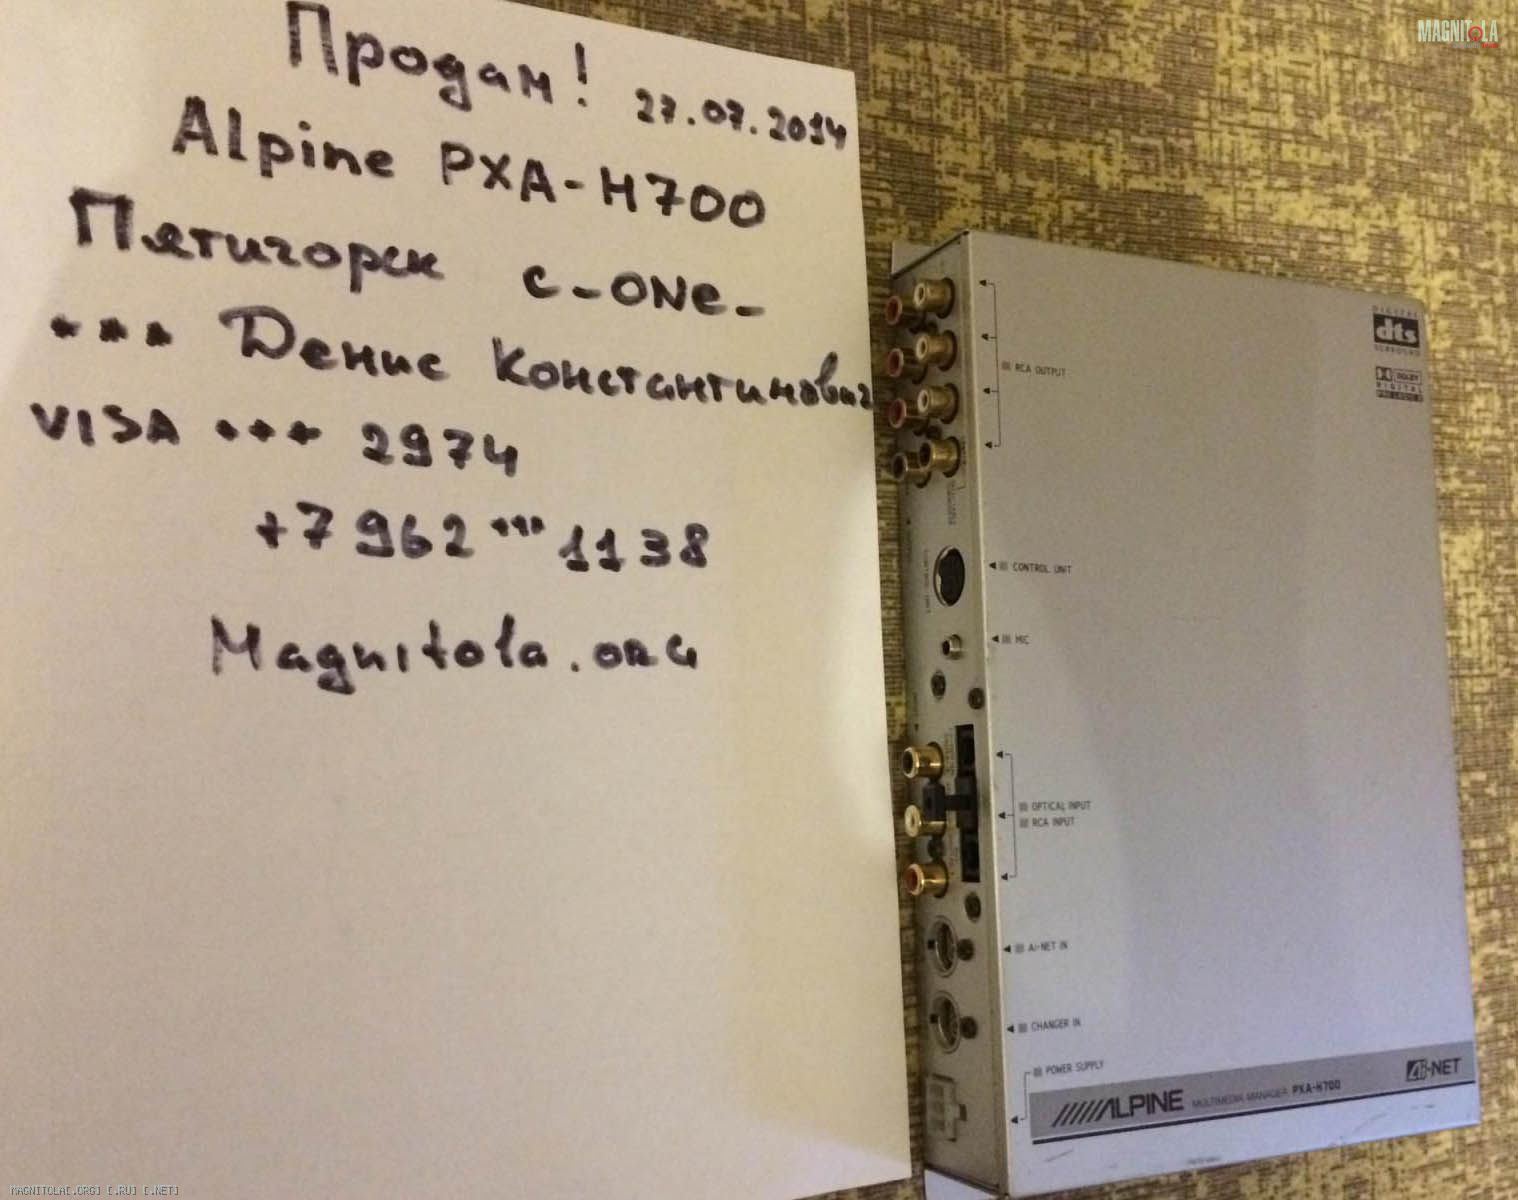 Продам! 27.07.2014
Alpine PXA-H700
Пятигорск c-one-
*** Денис Константинович
VISA *** 2974
+7 962 *** 1138
Magnitola.org
MAGNITOLA
DIGITAL
dts
SURROUND
DOLBY
DIGITAL
PRO LOGIC II
RCA OUTPUT
CONTROL UNIT
MIC
OPTICAL INPUT
RCA INPUT
Ai-NET IN
CHANGER IN
POWER SUPPLY
ALPINE MULTIMEDIA MANAGER PXA-H700 Ai-NET
MAGNITOLA[.ORG] [.RU] [.NET]